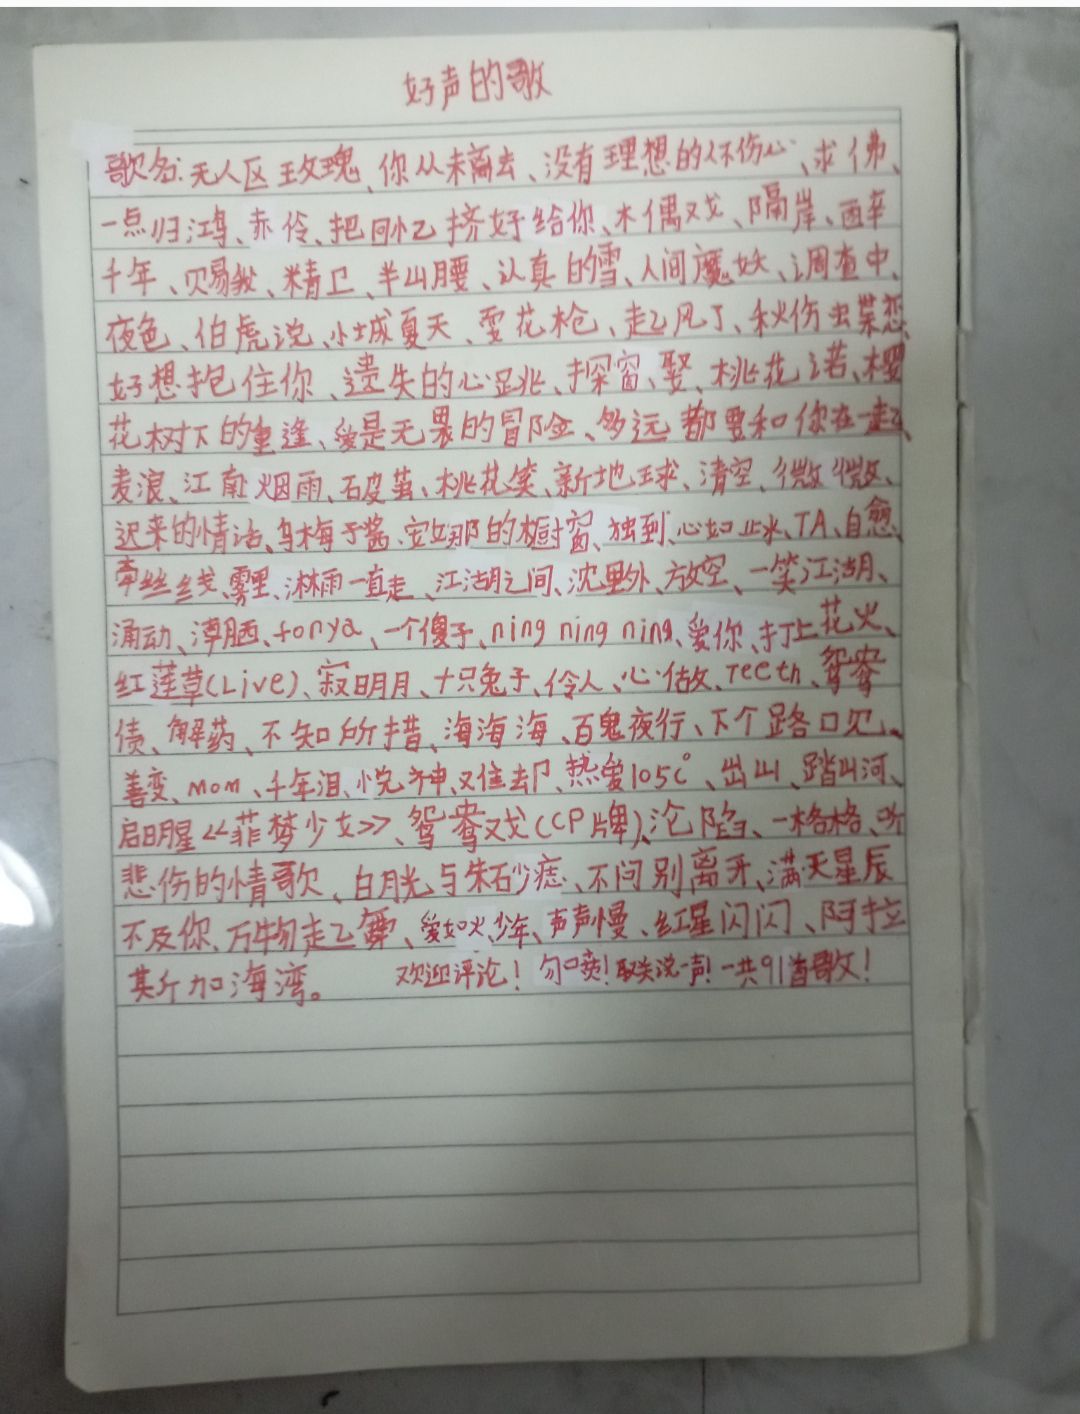 好声的歌
歌名:无人区玫瑰、你从未离去、没有理想的人不伤心、求佛、
一点归鸿、赤伶、把回忆拼好给你、木偶戏、隔岸、西辛
千年、赐我、精卫、半山腰、认真的雪、人间魔妖、调查中、
夜色、伯虎说、小城夏天、雪花枪、起风了、秋伤虫禁恋
好想抱住你、遗失的心跳、探窗、娶、桃花诺、樱
花树下的重逢、爱是无畏的冒险、多远都要和你在一起、
麦浪、江南烟雨、破茧、桃花笑、新地球、清空、微微、
迟来的情话、乌梅子酱、安娜的橱窗、独到、心如止水、TA、自愈、
牵丝线、雾里、淋雨一直走、江湖之间、沈里外、放空、一笑江湖、
涌动、漳晒、tonya、一个傻子、ning ning ning、爱你、打上花火、
红莲草(Live)、寂明月、十只兔子、伶人、心做、Teeth、鸳鸯
债、解药、不知所措、海海海、百鬼夜行、下个路口见、
善变、Mom、千年泪、悦神、难却、热爱105C°、出山、踏山河、
启明星《菲梦少女》、鸳鸯戏(CP牌)、沦陷、一格格、听
悲伤的情歌、白月光与朱砂痣、不问别离开、满天星辰
不及你、万物起舞、爱如火、少年、声声慢、红星闪闪、阿拉
斯加海湾。 欢迎评论!勿喷!取关说一声!一共91首歌!